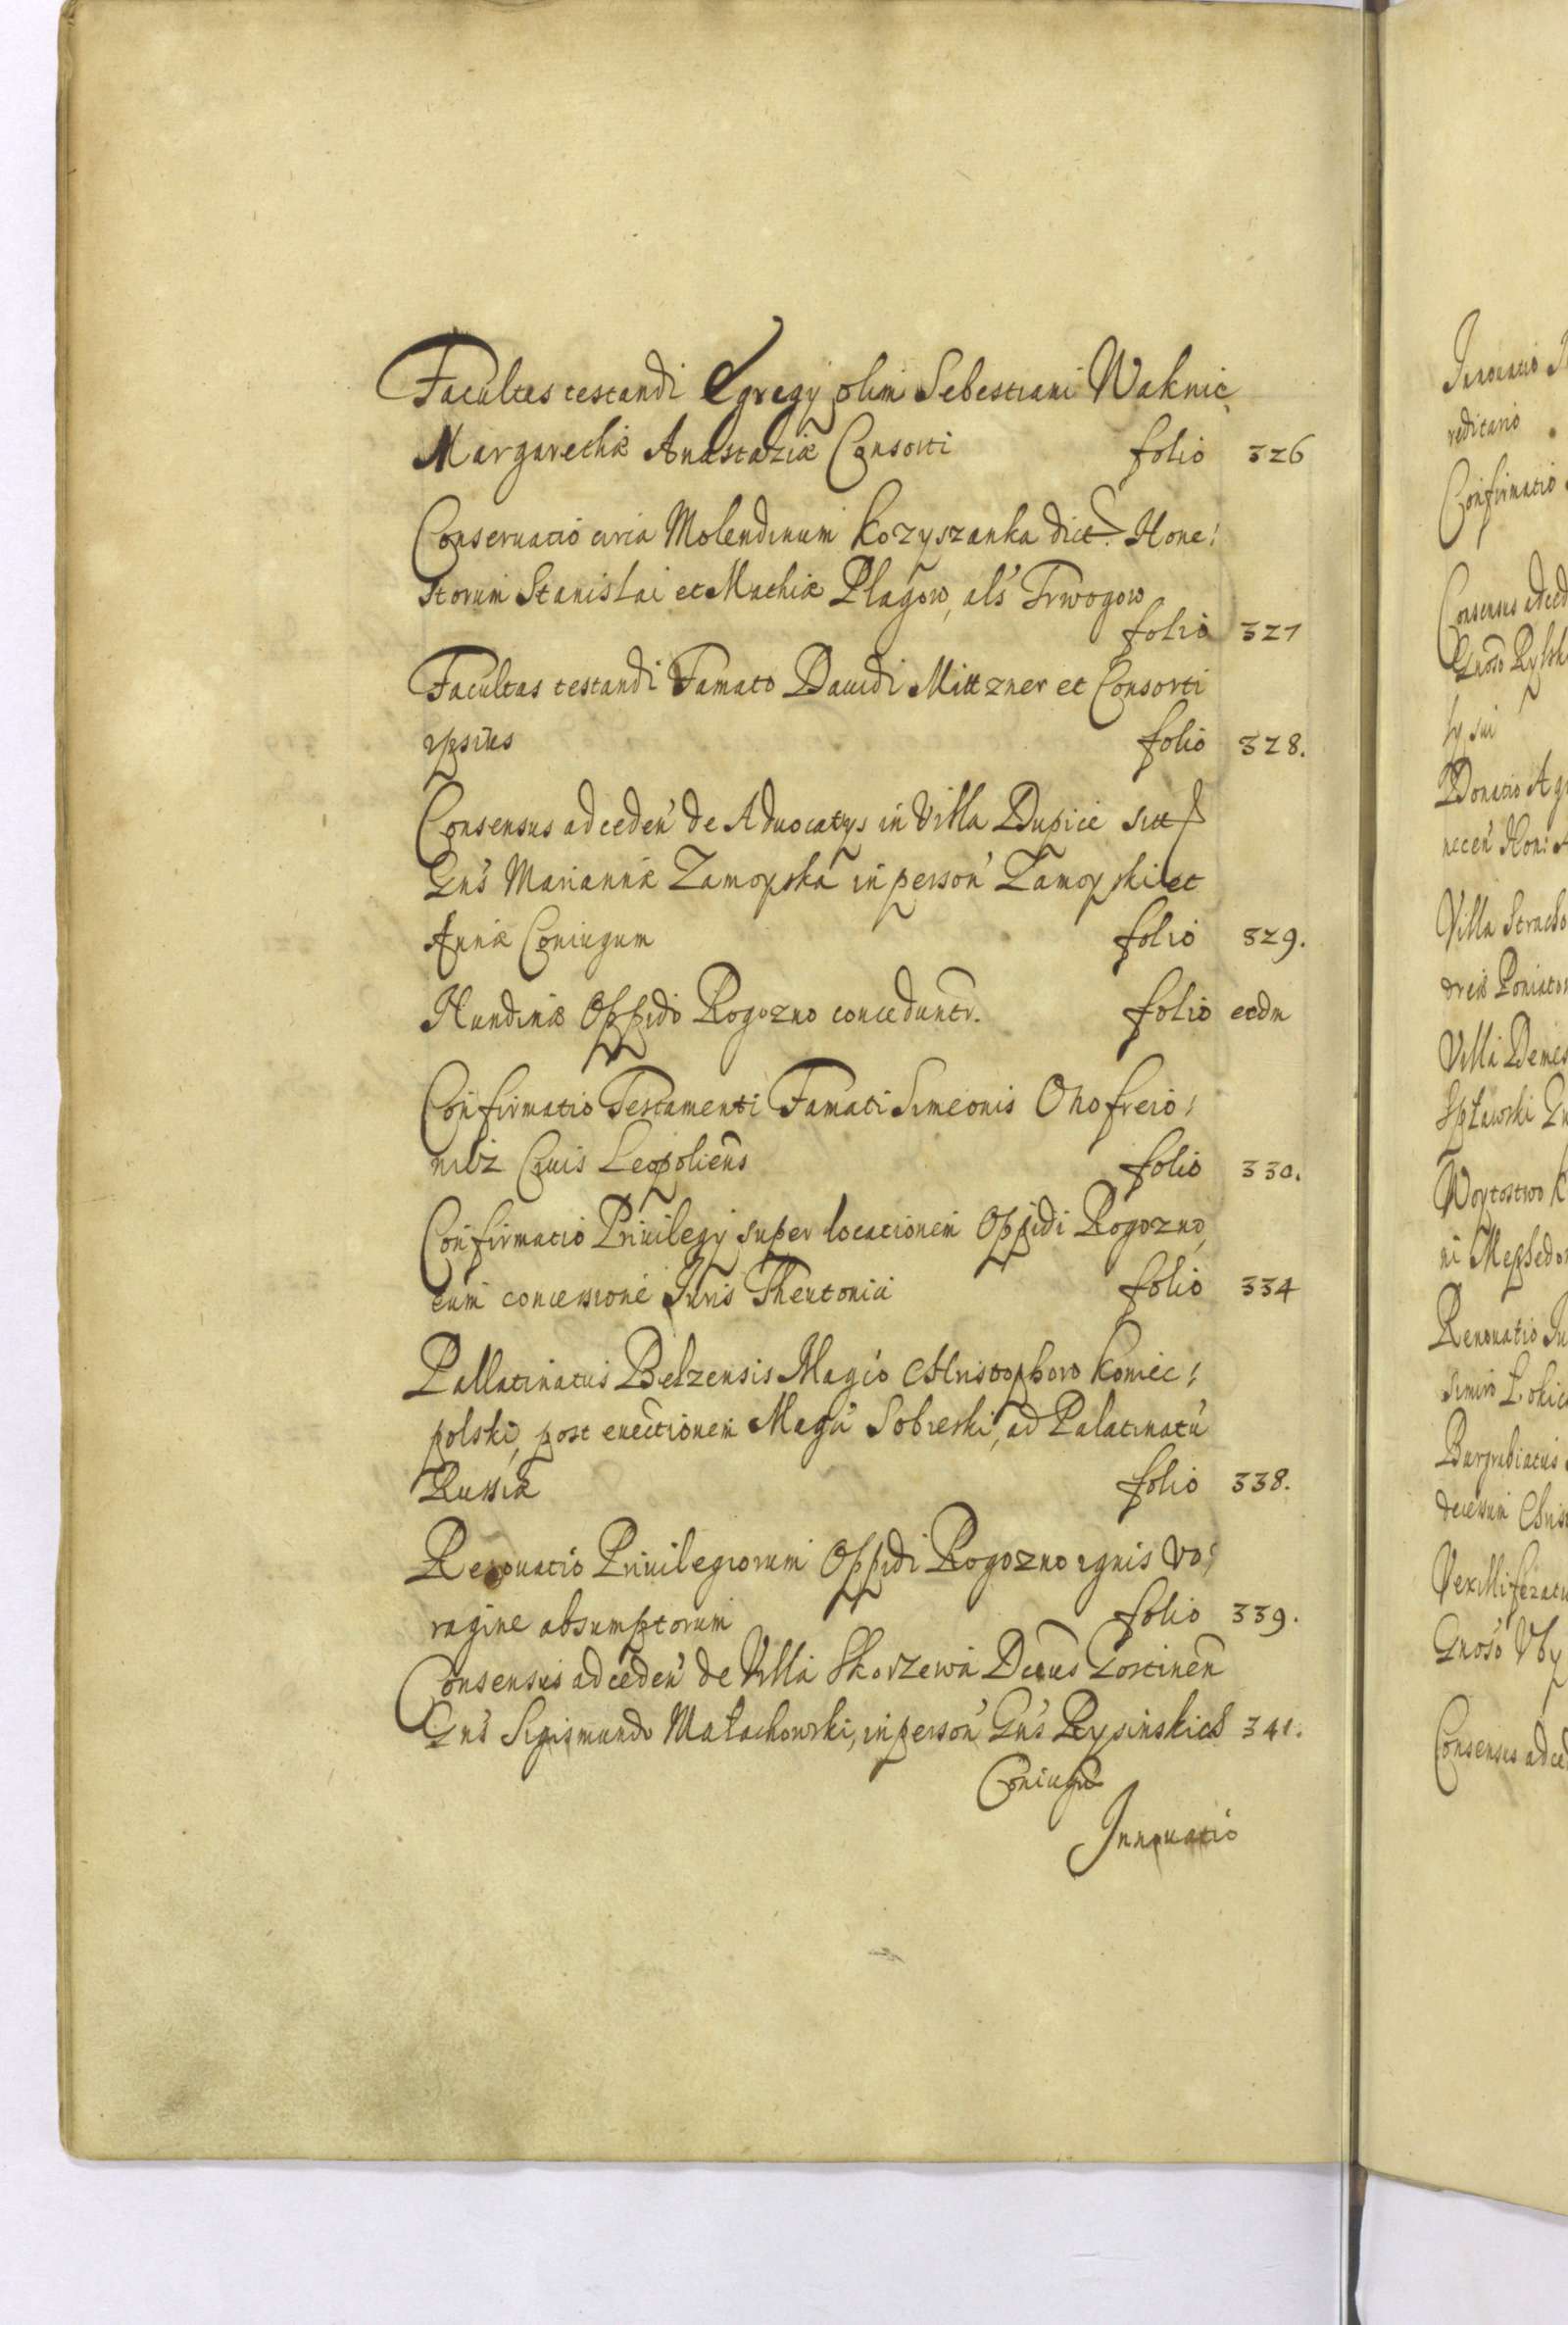 Facultas testandi Egregij olim Sebestiani Waknic
Margarethæ Anastaziæ Consorti folio 326
Conseruatio circa Molendinum Kozyszanka dict. Hone:
storum Stanislai et Mathiæ Plagow, als Trwogow
folio 327
Facultas testandi Famato Dauidi Mittzner et Consorti
ipsius folio 328.
Consensus ad ceden' de Aduocatijs in Villa Dupice
Gns Mariannæ Zamoyska in person' Zamoyski et
Annæ Coniugum folio 329.
Nundinæ Oppido Rogozno conceduntr. folio eodm
Confirmatio Testamenti Famati Simeonis Onofreio:
Ciuis Leopoliens folio 330.
Confirmatio Priuilegij super locationem Oppidi Rogozno,
cum concessione Juris Theutonici folio 334
Pallatinatus Belzensis Magco Christophoro Koniec:
polski, post euectionem Magci Sobieski, ad Palatinatu
Russiæ folio 338.
Renouatio Priuilegiorum Oppidi Rogozno ignis vo:
ragine absumptorum folio 339.
Consensus ad ceden' de Villa Skorzewa Gostinen
Gns Sigismundo Małachowski, in person' Gns Rysinskich 341.
Coniugu
Innouatio
reditario
Confirmatio
Consensus ad ced
Gnoso Rylsk
ly sui
Donatio Ag
necen' Hon: A
Villa Stracho
Poniatow
Villa Demes
Woytostwo K
Renouatio Ju
decessum Chris
Vexilliferatu
Gnoso Vby
Consensus ad ced